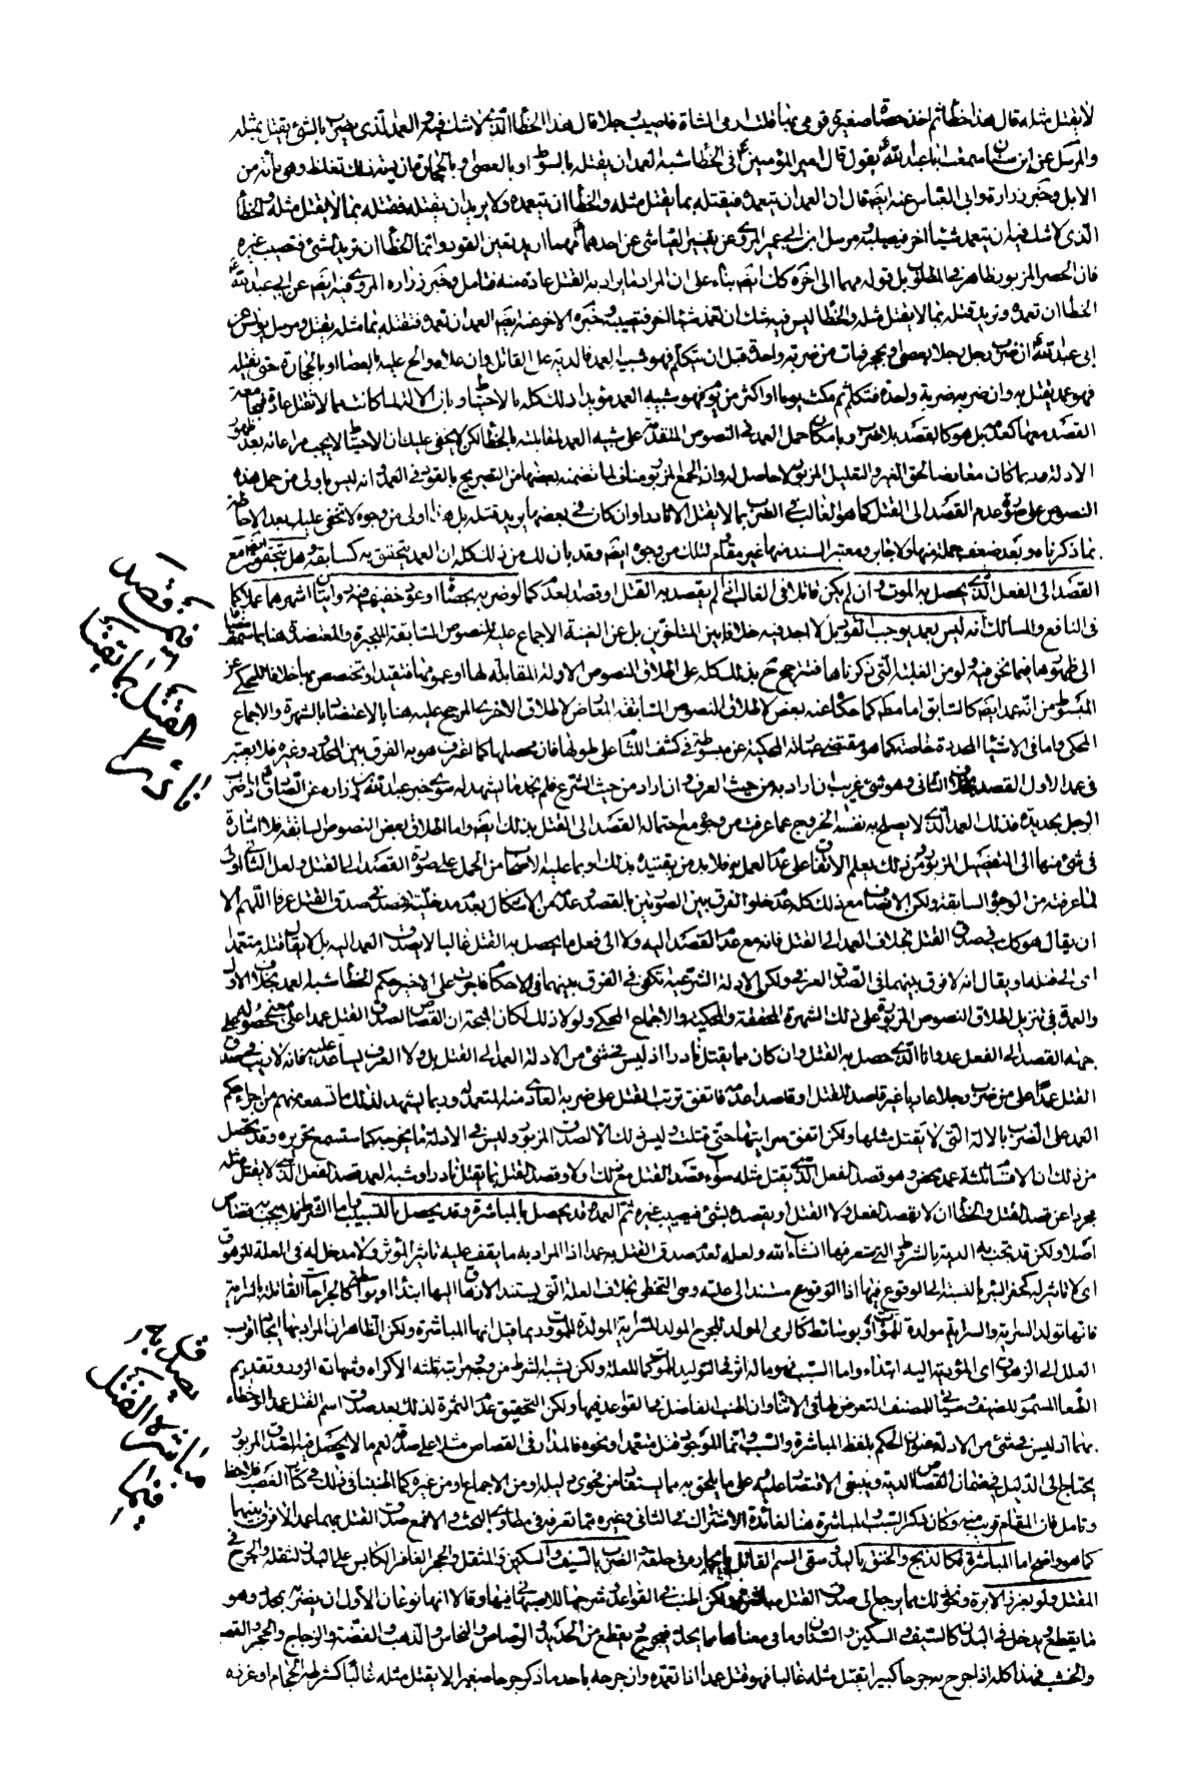 لا يقتل مثله قال هذا خطأ ثم اخذ حصاة صغيرة فرمى بها قلت ارمى الشاة فاصيب رجلا قال هذا الخطأ الذي لا شك فيه والعمد الذي يضرب بالشئ يقتل بمثله
والمرسل عن ابن سنان سمعت ابا عبد الله يقول قال امير المؤمنين في الخطأ شبه العمد ان يقتل بالسوط او بالعصا او بالحجارة ان دية ذلك تغلظ وهى مائة من
الابل وخبر زرارة وابى العباس عنه ايضا قال ان العمد ان يتعمده فيقتله بما يقتل مثله والخطأ ان يتعمده ولا يريد ان يقتله فقتله بما لا يقتل مثله والخطأ
الذى لا شك فيه ان يتعمد شيئا اخر فيصيبه ومرسل ابن ابى عمير المروى عن تفسير العياشى عن احدهما مهما اريد تعين القود وانما الخطأ ان تريد الشئ فتصيب غيره
فان الحصر المزبور ظاهر في المطلوب بل قوله مهما الى اخره كك ايضا بناء على ان المراد ما يراد به القتل عادة منه فتامل وخبر زراره المروى فيه ايضا عن ابى عبد الله
الخطأ ان تعمده وتريد قتله بما لا يقتل مثله والخطأ ليس فيه شك ان تعمد شيئا اخر فتصيبه وخبره الاخر عنه ايضا العمد ان تعمده فتقتله بما مثله يقتل ومرسل يونس عن
ابى عبد الله ان ضرب رجل رجلا بعصا او بحجر فمات من ضربة واحدة قبل ان يتكلم فهو شبه العمد فالدية على القاتل وان علاه والح عليه بالعصا او بالحجارة حتى يقتله
فهو عمد يقتل به وان ضربه ضربة واحدة فتكلم ثم مكث يوما او اكثر من يوم فهو شبيه العمد مؤيدا ذلك كله بالاحتياط وبان الالة لما كانت مما لا تقتل عادة فمجامعة
القصد معها كعدمه بل هو كالقصد بلا ضرب وبامكان حمل العمد في النصوص المتقدمة على شبه العمد لمقابلته بالخطأ لكن لا يخفى عليك ان الاحتياط لا يجب مراعاته بعد ظهور
الادلة مع انه ربما كان معارضا لحق الغير والتعليل المزبور لا حاصل له وان الجمع المزبور مناف لما تضمنه بعضها من التصريح بالقود في العمد وانه ليس باولى من حمل هذه
النصوص على صورة عدم القصد الى القتل كما هو الغالب في الضرب بما لا يقتل الا نادرا وان كان في بعضها يريد قتله بل هذا اولى من وجوه لا تخفى عليك بعد الاحاطة
بما ذكرناه وبعد ضعف جملة منها ولا جابر ومعتبر السند منها غير مقاوم لتلك من وجوه ايضا وقد بان لك من ذلك كله ان العمد يتحقق به كسابقه وهل يتحقق ايضا مع
القصد الى الفعل الذى يحصل به الموت وان لم يكن قاتلا في الغالب اذا لم يقصد به القتل او قصد بعدمه كما لو ضربه بحصاة او عود خفيف فيه روايتان اشهرهما عملا كما
في النافع والمسالك انه ليس بعمد يوجب القود بل لا اجد فيه خلافا بين المتاخرين بل عن الغنية الاجماع عليه للنصوص السابقة المنجبرة والمعتضدة هنا بما سمعت مضافا
الى ظهورها فيما نحن فيه ولو من الغلبة التى ذكرناها فترجح ح بذلك كله على اطلاق النصوص الاولة المقابلة لها او عمومها فتقيد او تخصص بها خلافا للمحكى عن
المبسوط من انه عمد ايضا كالسابق اما مطلقا كما حكاه عنه بعض لاطلاق النصوص السابقة المعارض لاطلاق الاخرى المرجح عليه هنا بالاعتضاد بالشهرة والاجماع
المحكى واما في الاشياء المحددة خاصة كما هو مقتضى عبارته المحكية عن مبسوطه في كشف اللثام على طولها فان محصلها كما اعترف هو به الفرق بين المحدد وغيره فلا يعتبر
في عمد الاول القصد بخلاف الثانى وهو شئ غريب ان اراد به من حيث العرف وان اراد من حيث الشرع فلم نجد ما يشهد له سوى خبر عبد الله بن زراره عن الصادق اذا ضرب
الرجل بحديدة فذلك العمد الذى لا يصلح بنفسه الخروج عما عرفت من وجوه مع احتمال القصد الى القتل بذلك ايضا واما اطلاق بعض النصوص السابقة فلا اشارة
في شئ منها الى التفصيل المزبور ومن ذلك يعلم الاتفاق على عدم العمل به فلا بد من تقييده بذلك او بما عليه الاصحاب من الحمل على صورة القصد الى القتل ولعل الثانى اولى
لما عرفته من الوجوه السابقة ولكن الانصاف مع ذلك كله عدم خلو الفرق بين الصورتين بالقصد وعدمه من الاشكال بعد عدم مدخلية القصد في صدق القتل عرفا اللهم الا
ان يقال هو كك في صدق القتل بخلاف العمد الى القتل فانه مع عدم القصد اليه ولا الى فعل ما يحصل به القتل غالبا لا يصدق العمد اليه بل لا يقال قتله متعمدا
اى الى قتله او يقال انه لا فرق بينهما في الصدق العرفى ولكن الادلة الشرعية تكفى في الفرق بينهما في الاحكام فاجرت على الاخير حكم الخطأ شبه العمد بخلاف الاول
والعمدة في تنزيل اطلاق النصوص المزبورة على ذلك الشهرة المحققة والمحكية والاجماع المحكى ولولا ذلك لكان المتجه ان القصاص لصدق القتل عمدا على معنى حصوله على
جهة القصد الى الفعل عدوانا الذى حصل به القتل وان كان مما يقتل نادرا اذ ليس في شئ من الادلة العمد الى القتل بل ولا العرف يساعد عليه فانه لا ريب في صدق
القتل عمدا على من ضرب رجلا عاديا غير قاصد للقتل او قاصدا عدمه فاتفق ترتب القتل على ضربه العادى منه المتعمد له وربما يشهد لذلك ما تسمعه منهم من اجراء حكم
العمد على الضرب بالالة التى لا يقتل مثلها ولكن اتفق سرايتها حتى قتلت وليس ذلك الا لصدق المزبور وليس في الادلة ما يخرجه كما ستسمع تحريره وقد تحصل
من ذلك ان الاقسام ثلثة عمد محض وهو قصد الفعل الذى يقتل مثله سواء قصد القتل مع ذلك او لا وقصد القتل بما يقتل نادرا وشبه العمد قصد الفعل الذى لا يقتل مثله
مجردا عن قصد القتل والخطأ ان لا يقصد الفعل ولا القتل او يقصده بشئ فيصيب غيره ثم العمد قد يحصل بالمباشرة وقد يحصل بالتسبيب واما الشرط فلا يجب به قصاص
اصلا ولكن قد تجب به الدية بالشروط التى ستعرفها انشاء الله ولعله لعدم صدق القتل به عمدا اذا المراد به ما يقف عليه تاثير المؤثر ولا مدخل له في العلة للزهوق
اى لا تاثير له كحفر البئر بالنسبة الى الوقوع فيها اذا الوقوع مستند الى علته وهى التخطى بخلاف العلة التى يستند الازهاق اليها ابتداء او بوسائط كالجراحات القاتلة بالسراية
فانها تولد السراية والسراية مولدة للموت او بوسائط كالرمى المولد للجرح المولد للسراية المولدة للموت وربما قيل انها المباشرة ولكن الظاهر ان المراد بها ايجاد اقرب
العلل الى الزهوق اى المؤدية اليه ابتداء واما السبب فهو ما له اثر في التوليد للموت كما للعلة ولكن يشبه الشرط من وجه ومراتبه ثلثه الاكراه وشهادة الزور وتقديم
الطعام المسموم للضيف وسياتى للمصنف التعرض لها في الاثناء وان اطنب الفاضل في القواعد فيها ولكن التحقيق عدم الثمرة لذلك بعد صدق اسم القتل عمدا او خطاء
بهما اذ ليس في شئ من الادلة عنوان الحكم بلفظ المباشرة والتسبيب وانما الموجود قتل متعمدا ونحوه فالمدار في القصاص مثلا على صدقه نعم ما لا يحصل فيه الصدق المزبور
يحتاج الى الدليل في ضمان القصاص او الدية وينبغى الاقتصار عليه وعلى ما يلحق به مما يستفاد من فحوى دليله او من الاجماع او من غيره كما اطنبنا في ذلك في كتاب الغصب فلاحظ
وتامل فان المقام قريب منه وكان ذكر التسبيب والمباشرة هنا لفائدة الاشتراك في الثانى وغيره مما تعرفه في مطاوى البحث والا فمع صدق القتل بهما عمدا لا فرق بينهما
كما هو واضح اما المباشرة فكالذبح والخنق باليد وسقى السم القاتل بايجاره في حلقه والضرب بالسيف والسكين والمثقل والحجر الغامز الكابس على البدن لثقله والجرح في
المقتل ولو بغرز الابرة ونحو ذلك مما يرجع الى صدق القتل مباشرة ولكن اطنب في القواعد شرحها للاصبهانى فيها وقالا انها نوعان الأول ان يضربه بمحدد وهو
ما يقطع ويدخل في البدن كالسيف والسكين والسنان وما في معناها مما يحدد فيجرح ويقطع من الحديد والرصاص والنحاس والذهب والفضة والزجاج والحجر والقصب
والخشب فهذا كله اذا جرح به جرحا كبيرا يقتل مثله غالبا فهو قتل عمد اذا تعمده وان جرحه باحد ما ذكر جرحا صغيرا لا يقتل مثله غالبا كشرطة الحجام او غرزه
فيمن قصد
القتل بما يقتل
نادرا
قتل به
يصدق القتل
مباشرة
فيما